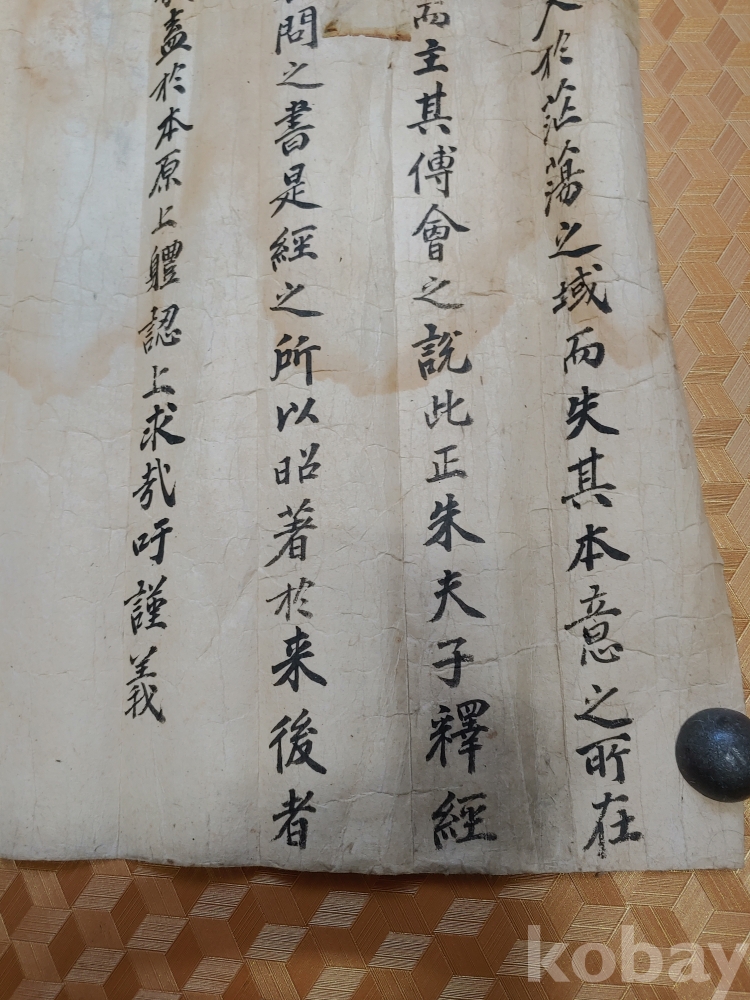 於茫蕩之域而失其本意之所在
而主其傅會之說此正朱夫子釋經
問之書是經之所以昭著於来後者
盡於本原上體認上求㢤吁謹義
kobay